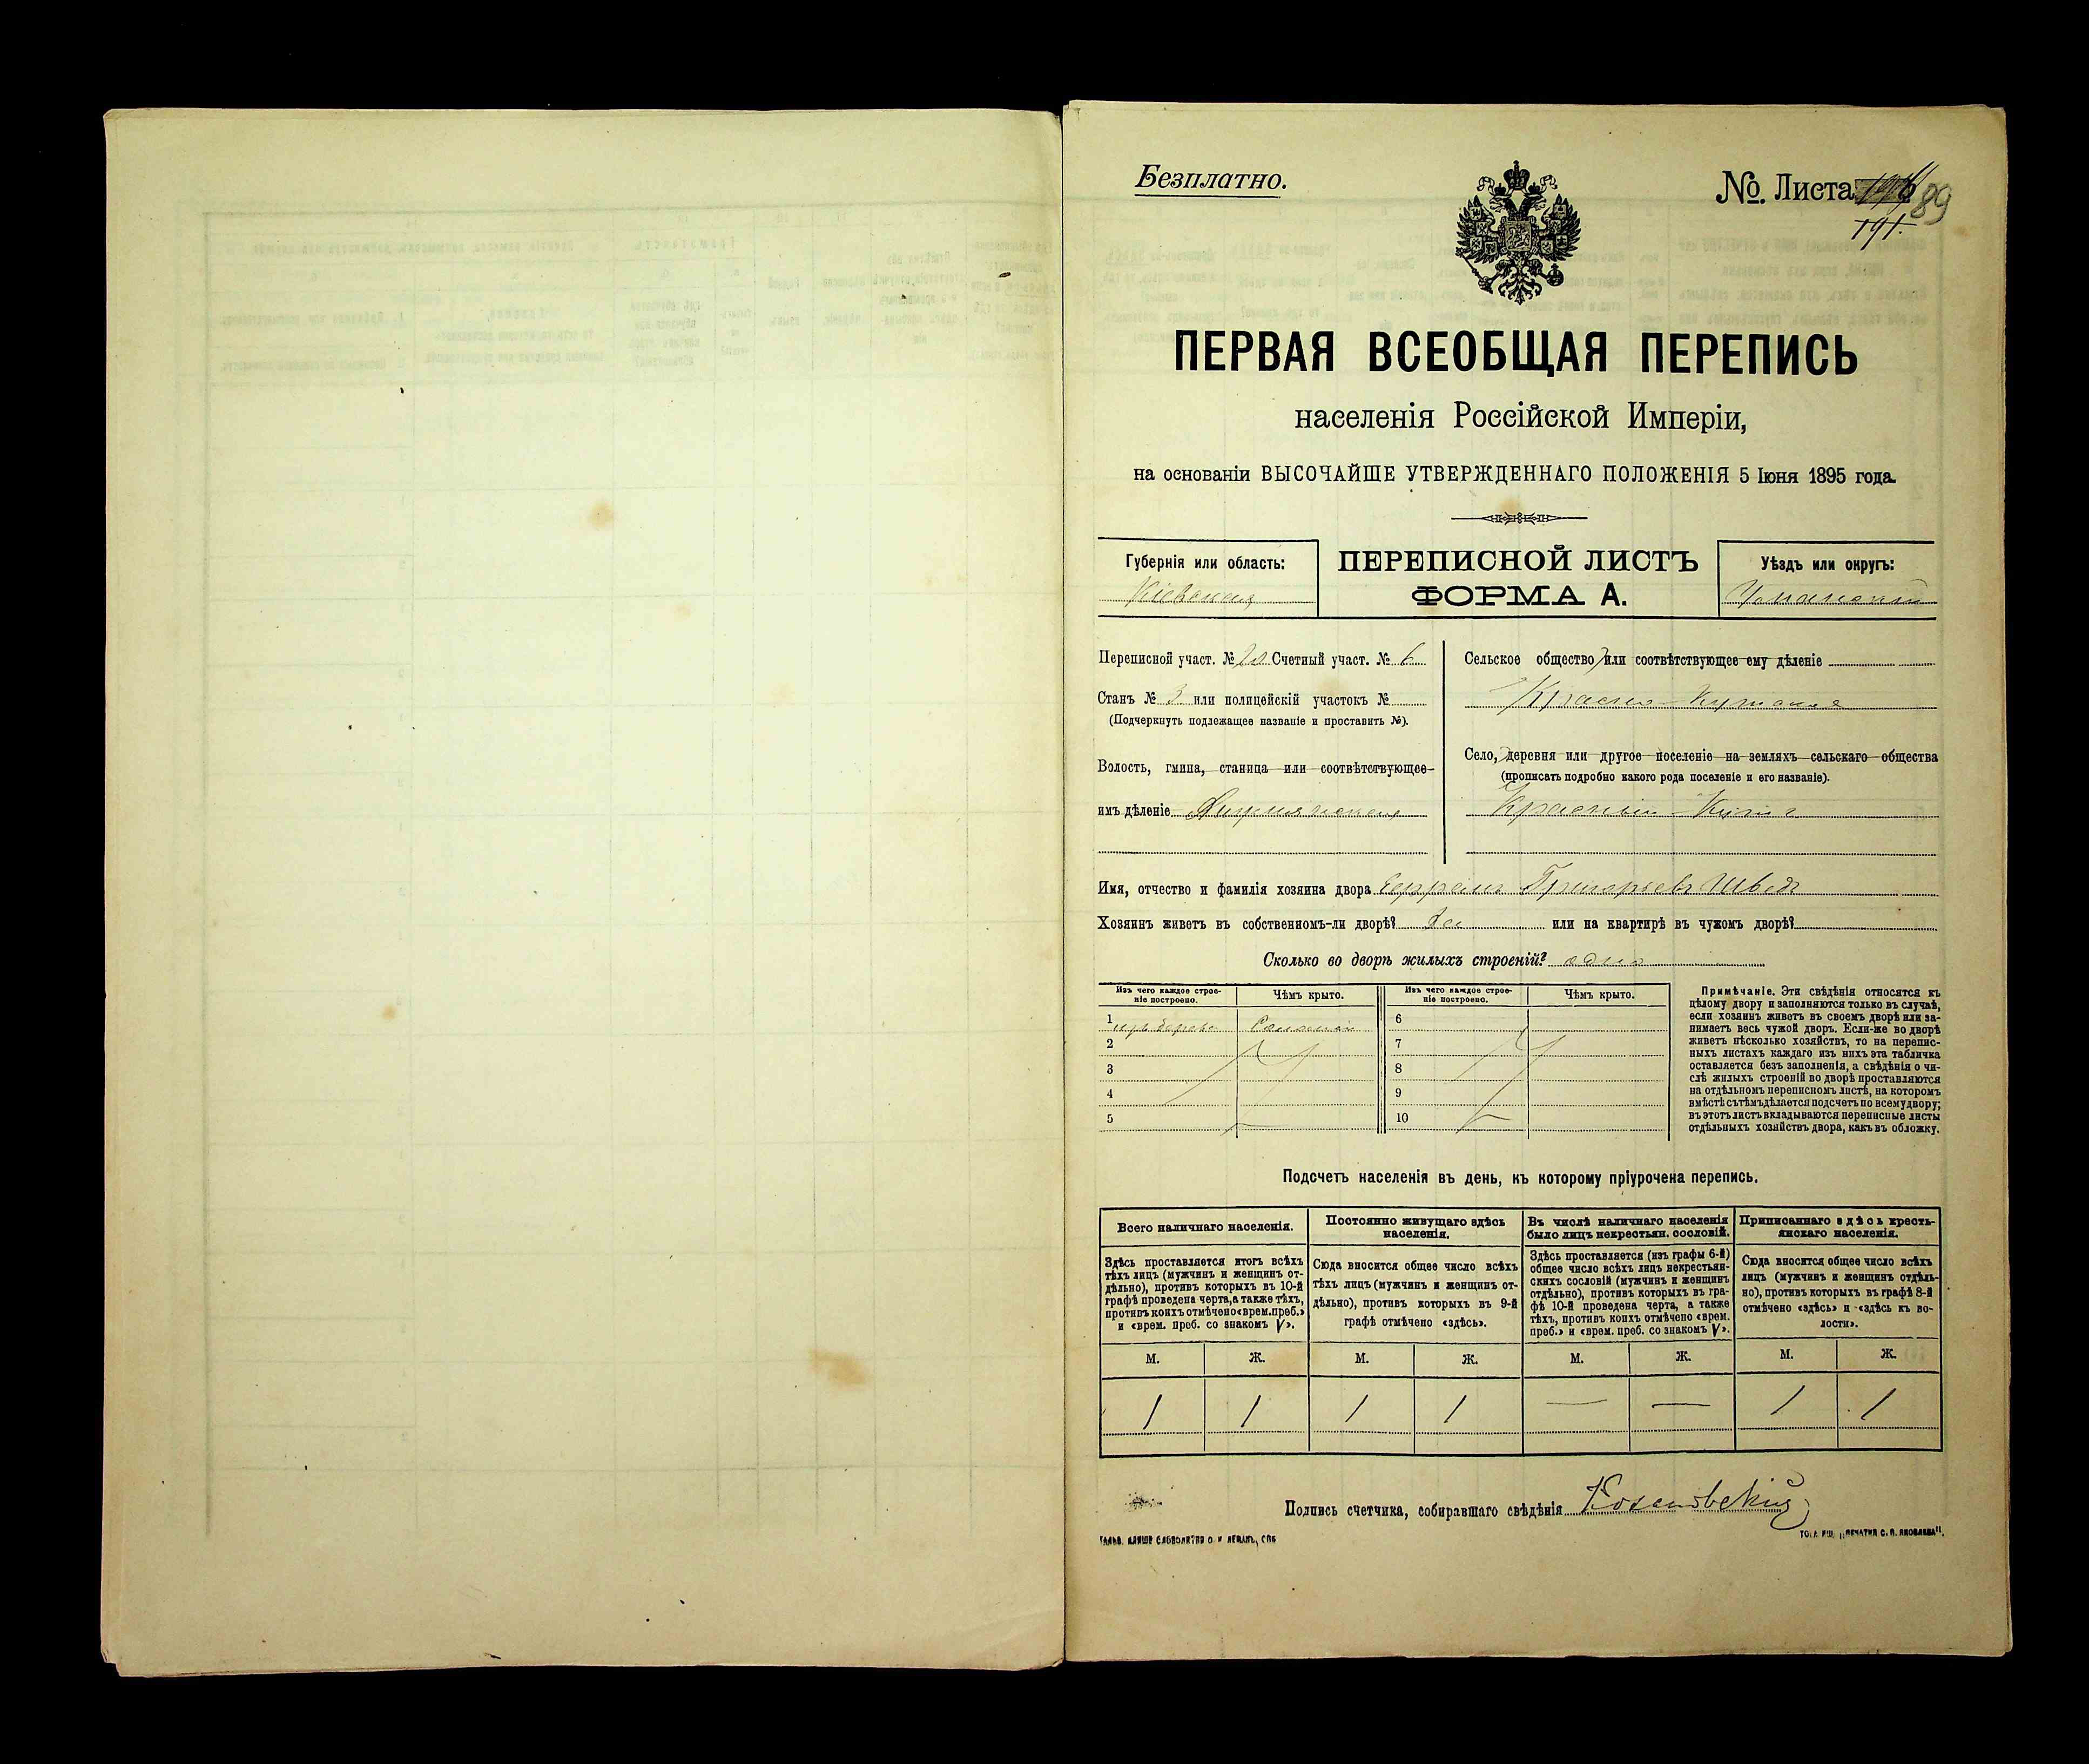 Безплатно.
№. Листа 191. 89
ПЕРВАЯ ВСЕОБЩАЯ ПЕРЕПИСЬ
населенія Россійской Имперіи,
на основаніи ВЫСОЧАЙШЕ УТВЕРЖДЕННАГО ПОЛОЖЕНІЯ 5 Іюня 1895 года.
Губернія или область:
Кіевская
ПЕРЕПИСНОЙ ЛИСТЪ
ФОРМА А.
Уѣздъ или округъ:
Уманскій
Переписной участ. № 20 Счетный участ. № 6
Станъ № 3 или полицейскій участокъ №
(Подчеркнуть подлежащее названіе и проставить №).
Волость, гмина, станица или соотвѣтствующее
имъ дѣленіе
Сельское общество или соотвѣтствующее ему дѣленіе
Красно-Кутское
Село, деревня или другое поселеніе на земляхъ сельскаго общества
(прописать подробно какого рода поселеніе и его названіе).
Красный-Кутъ
Имя, отчество и фамилія хозяина двора Григорьевъ Шведъ
Хозяинъ живетъ въ собственномъ-ли дворѣ? Да или на квартирѣ въ чужомъ дворѣ?
Сколько во дворѣ жилыхъ строеній? одно
Изъ чего каждое строе-
ніе построено.
Чѣмъ крыто.
Изъ чего каждое строе-
ніе построено.
Чѣмъ крыто.
1 изъ дерева Соломой 6
2 7
3 8
4 9
5 10
Примѣчаніе. Эти свѣдѣнія относятся къ
цѣлому двору и заполняются только въ случаѣ,
если хозяинъ живетъ въ своемъ дворѣ или за-
нимаетъ весь чужой дворъ. Если-же во дворѣ
живетъ нѣсколько хозяйствъ, то на перепис-
ныхъ листахъ каждаго изъ нихъ эта табличка
оставляется безъ заполненія, а свѣдѣнія о чи-
слѣ жилыхъ строеній во дворѣ проставляются
на отдѣльномъ переписномъ листѣ, на которомъ
вмѣстѣ съ тѣмъ дѣлается подсчетъ по всему двору;
въ этотъ листъ вкладываются переписные листы
отдѣльныхъ хозяйствъ двора, какъ въ обложку.
Подсчетъ населенія въ день, къ которому пріурочена перепись.
Всего наличнаго населенія.
Постоянно живущаго здѣсь
населенія.
Въ числѣ наличнаго населенія
было лицъ некрестьян. сословій.
Приписаннаго здѣсь кресть-
янскаго населенія.
Здѣсь проставляется итогъ всѣхъ
тѣхъ лицъ (мужчинъ и женщинъ от-
дѣльно), противъ которыхъ въ 10-й
графѣ проведена черта, а также тѣхъ,
противъ коихъ отмѣчено «врем. преб.»
и «врем. преб. со знакомъ V».
Сюда вносится общее число всѣхъ
тѣхъ лицъ (мужчинъ и женщинъ от-
дѣльно), противъ которыхъ въ 9-й
графѣ отмѣчено «здѣсь».
Здѣсь проставляется (изъ графы 6-й)
общее число всѣхъ лицъ некрестьян-
скихъ сословій (мужчинъ и женщинъ
отдѣльно), противъ которыхъ въ гра-
фѣ 10-й проведена черта, а также
тѣхъ, противъ коихъ отмѣчено «врем.
преб.» и «врем. преб. со знакомъ V».
Сюда вносится общее число всѣхъ
лицъ (мужчинъ и женщинъ отдѣль-
но), противъ которыхъ въ графѣ 8-й
отмѣчено «здѣсь» и «здѣсь къ во-
лости».
М. Ж. М. Ж. М. Ж. М. Ж.
1 1 1 1 — — 1 1
Подпись счетчика, собиравшаго свѣдѣнія